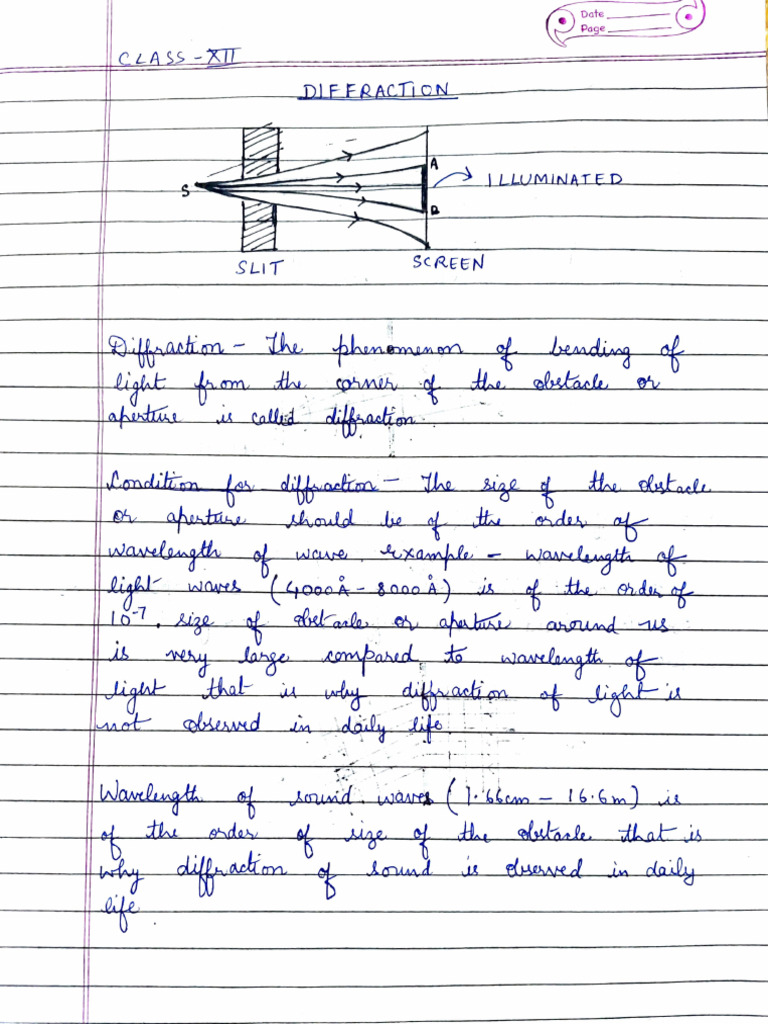 Date
Page
CLASS - XII
DIFFRACTION
S
A
ILLUMINATED
B
SLIT
SCREEN
Diffraction - The phenomenon of bending of
light from the corner of the obstacle or
aperture is called diffraction.
Condition for diffraction - The size of the obstacle
or aperture should be of the order of
wavelength of wave. Example - wavelength of
light waves (4000Å - 8000Å) is of the order of
10⁻⁷. size of obstacle or aperture around us
is very large compared to wavelength of
light that is why diffraction of light is
not observed in daily life.
Wavelength of sound waves (1.66cm - 16.6m) is
of the order of size of the obstacle that is
why diffraction of sound is observed in daily
life